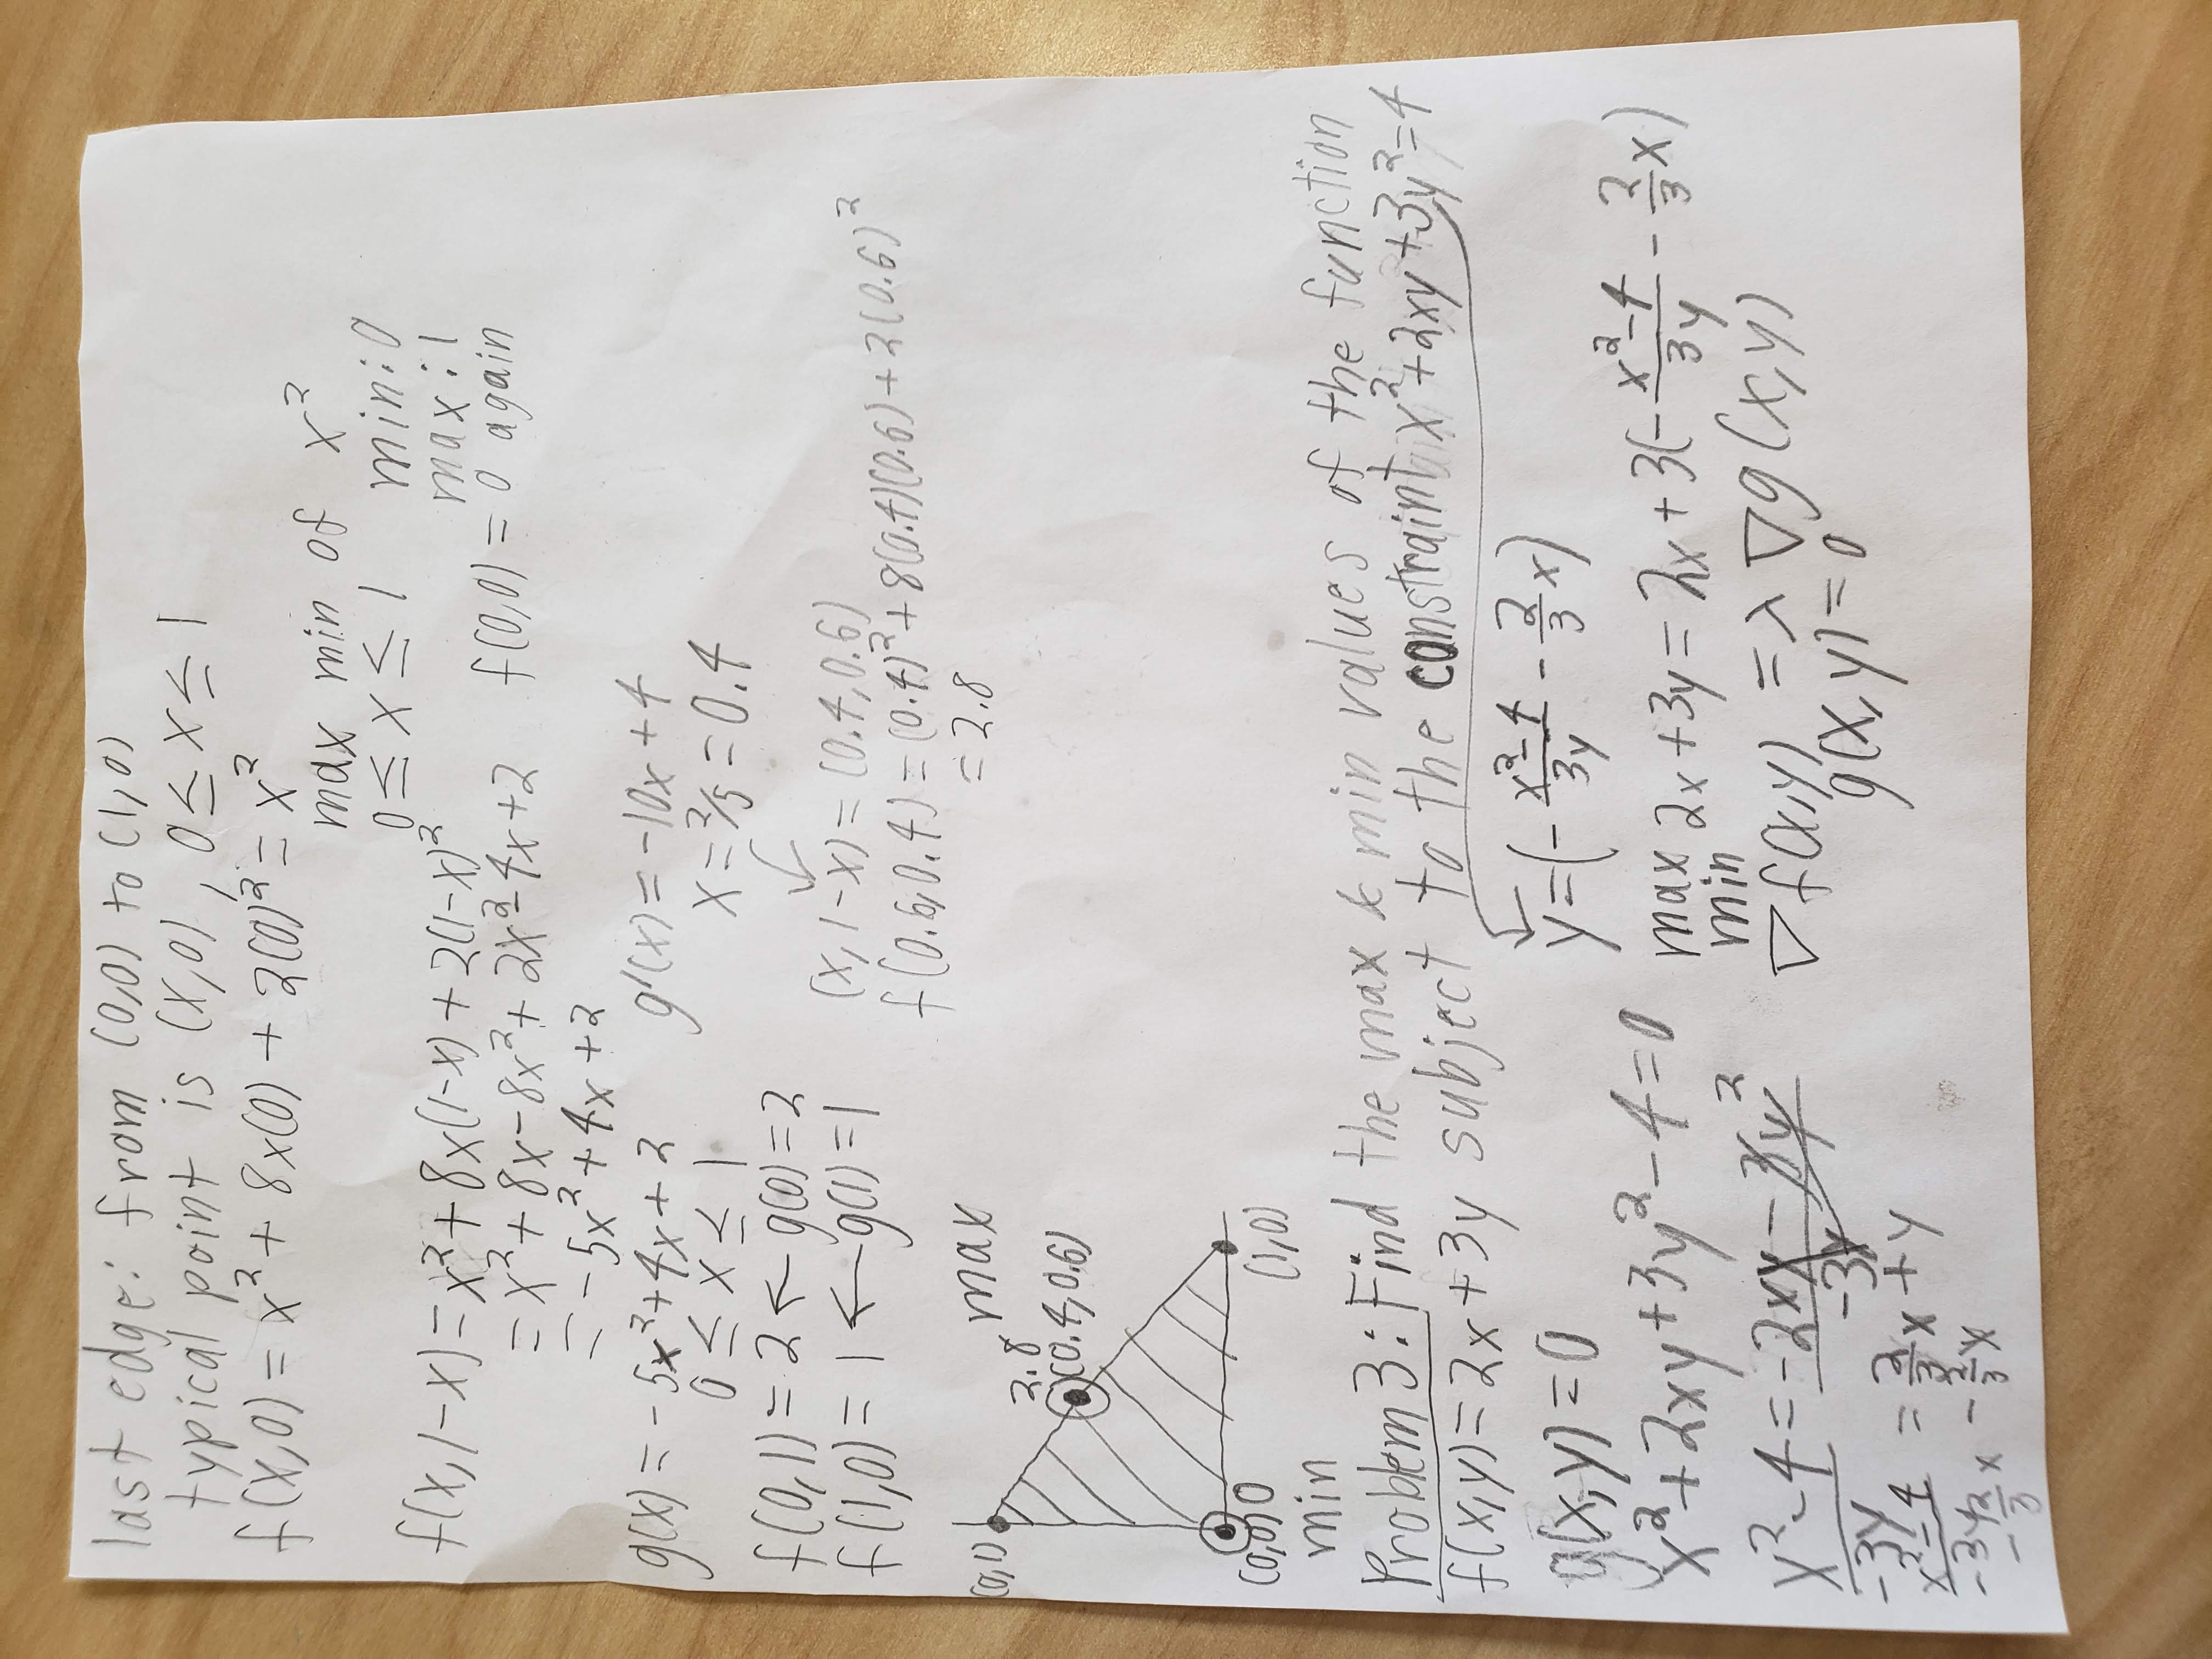 last edge: from (0,0) to (1,0)
typical point is (x,0), 0 ≤ x ≤ 1
f(x,0) = x² + 8x(0) + 2(0)² = x²
max min of x²
0 ≤ x ≤ 1 min: 0
max: 1
f(0,0) = 0 again
f(x,1-x) = x² + 8x(1-x) + 2(1-x)²
= x² + 8x - 8x² + 2x² - 4x + 2
= -5x² + 4x + 2
g(x) = -5x² + 4x + 2
0 ≤ x ≤ 1
f(0,1) = 2 ← g(0) = 2
f(1,0) = 1 ← g(1) = 1
g'(x) = -10x + 4
x = 2/5 = 0.4
(x, 1-x) = (0.4, 0.6)
f(0.6, 0.4) = (0.4)² + 8(0.4)(0.6) + 2(0.6)²
= 2.8
max
(0,1)
2.8
(0.4, 0.6)
(0,0) 0
(1,0)
min
Problem 3: Find the max & min values of the function
f(x,y) = 2x + 3y subject to the constraint x² + 2xy + 3y² = 4
g(x,y) = 0
x² + 2xy + 3y² - 4 = 0
x² - 4 = -2xy - 3y²
-3y -3y
x² - 4 = 2/3 x + y
-3y
-2/3 x -2/3 x
y = (- (x² - 4)/3y - 2/3 x)
max 2x + 3y = 2x + 3(- (x² - 4)/3y - 2/3 x)
min
∇f(x,y) = λ∇g(x,y)
g(x,y) = 0